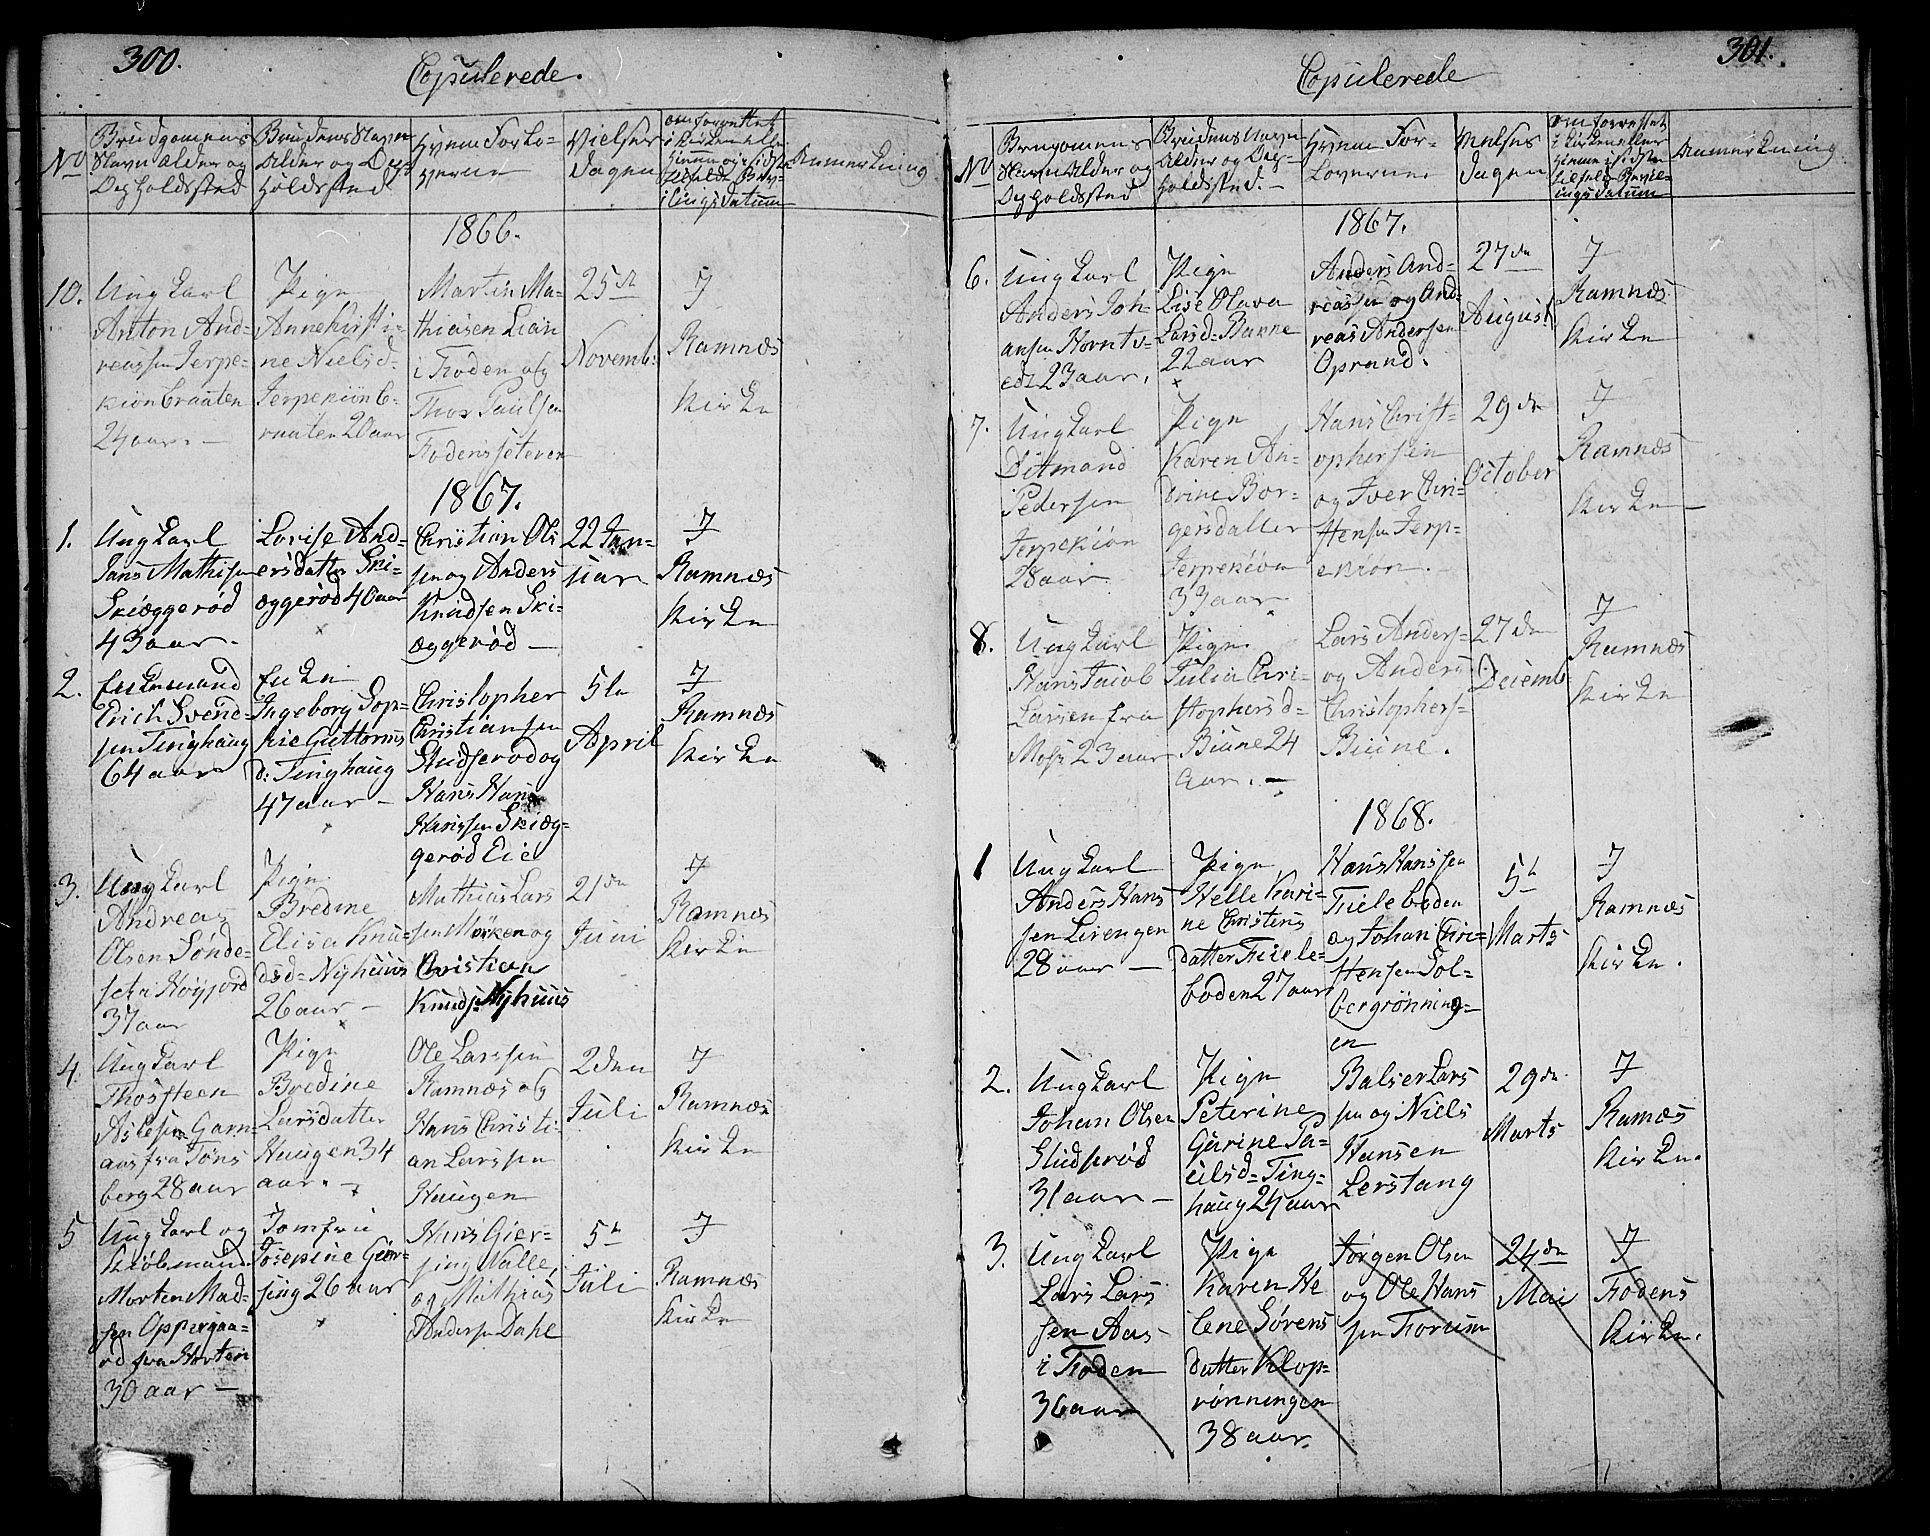 300.
Copulerede.
No
Brudgomens
Navn Alder og
Opholdssted
Brudens Navn
Alder og Op-
holdssted
Hvem Forlo-
verne
Vielses
dagen
om forrettet
i kirken eller
hjemme og i sidste
Tilfælde Bev-
ilingsdatum
Anmerkning
1866.
10.
Ungkarl
Anton And-
reassen Jerpe-
kiønbraaten
24 aar. —
Pige
Anne Kirsti-
ne Nielsd.
Jerpekiønb-
raaten 20 aar
Martin Ma-
thiasen Lian
i Foden og
Thor Paulsen
Fodenssetover
25de
Novemb:
I
Ramnæs
Kirke
1867.
1.
Ungkarl
Jans Mathisen
Skiæggerød
43 aar.
Lovise And-
ersdatter Ski-
æggerød 40 aar
Christian Ols
sen og Anders
Knudsen Ski-
æggerød —
22 Jan-
uar
I
Ramnæs
Kirke
2.
Enkemand
Erich Svend-
sen Tinghaug
64 aar
Enke
Ingeborg Sop-
hie Guttorms
d: Tinghaug
47 aar —
Christopher
Christiansen
Studserod og
Hans Hans
Hanssen Skiæg-
gerød Eie
5te
April
I
Ramnæs
Kirke
3.
Ungkarl
Andreas
Olsen Sønde-
set i Høyjord
37 aar
Pige
Bredine
Elisa Knu-
dsd= Nyhuus
26 aar —
Mathias Lars
sen Mørken og
Christian
Knuds. Nyhuus
21de
Juni
I
Ramnæs
Kirke
4.
Ungkarl
Thosteen
Aslesen Garn-
aas fra Tøns
berg 28 aar
Pige
Bredine
Larsdatter
Haugen 34
aar. —
Ole Larssen
Ramnæs og
Hans Christi-
an Larssen
Haugen
2den
Juli
I
Ramnæs
Kirke
5
Ungkarl og
Kiøbmand
Morten Mad-
sen Oppegaa-
rd fra Horten
30 aar —
Jomfru
Josepine Gier-
sing 26 aar
Hans Gier-
sing Valle,
og Mathias
Andersen Dahl
5te
Juli
I
Ramnæs
Kirke
301.
Copulerede
No
Brugomens
Navn Alder og
Opholdssted
Brudens Navn
Alder og Op-
holdssted. —
Hvem For-
loverne
Vielses
dagen
om forrettet
i kirken eller
hjemme i sidste
tilfælde Bevil-
ingsdatum
Anmerkning
1867.
6.
Ungkarl
Anders Joh
ansen Horntv-
edt 23 aar.
Pige
Lise Olava
Larsd= Bakke
22 aar
Anders And-
reassen og And-
reas Andersen
Oprand.
27de
August
I
Ramnæs
Kirke
7.
Ungkarl
Ditmand
Pedersen
Jerpekiøn
28 aar
Pige
Karen An-
drine Bor-
gersdatter
Jerpekiøn
33 aar
Hans Christ-
ophersen
og Iver Chri-
stensen Jerp-
ekiøn.
29de
October
I
Ramnæs
Kirke
8.
Ungkarl
Hans Jacob
Larsen fra
Moss 23 aar
Pige
Julia Chri-
stophersd-
Biune 24
aar. —
Lars Anders-
og Anders
Christophers-
Biune.
27de
Decemb
I
Ramnæs
Kirke
1868.
1
Ungkarl
Anders Hans
sen Lirengen
28 aar —
Pige
Helle Kari-
ne Christens
datter Fiele-
boden 27 aar
Hans Hanssen
Fieleboden
og Johan Chri-
stensen Sol-
bergrønning-
en
5te
Marts
I
Ramnæs
Kirke.
2.
Ungkarl
Johan Olsen
Studserød
31 aar —
Pige
Peterine
Garine Pa-
ulsd= Ting-
haug 24 aar
Balser Lars
sen og Niels
Hansen
Lerstang
29de
Marts
I
Ramæs
Kirke.
3.
Ungkarl
Lars Lars
sen Aas
i Foden
36 aar
Pige
Karen He
lene Sørens
datter Klop-
rønningen
38 aar.
Jørgen Olsen
og Ole Hans
sen Forum
24de
Mai
I
Fodens
Kirke.